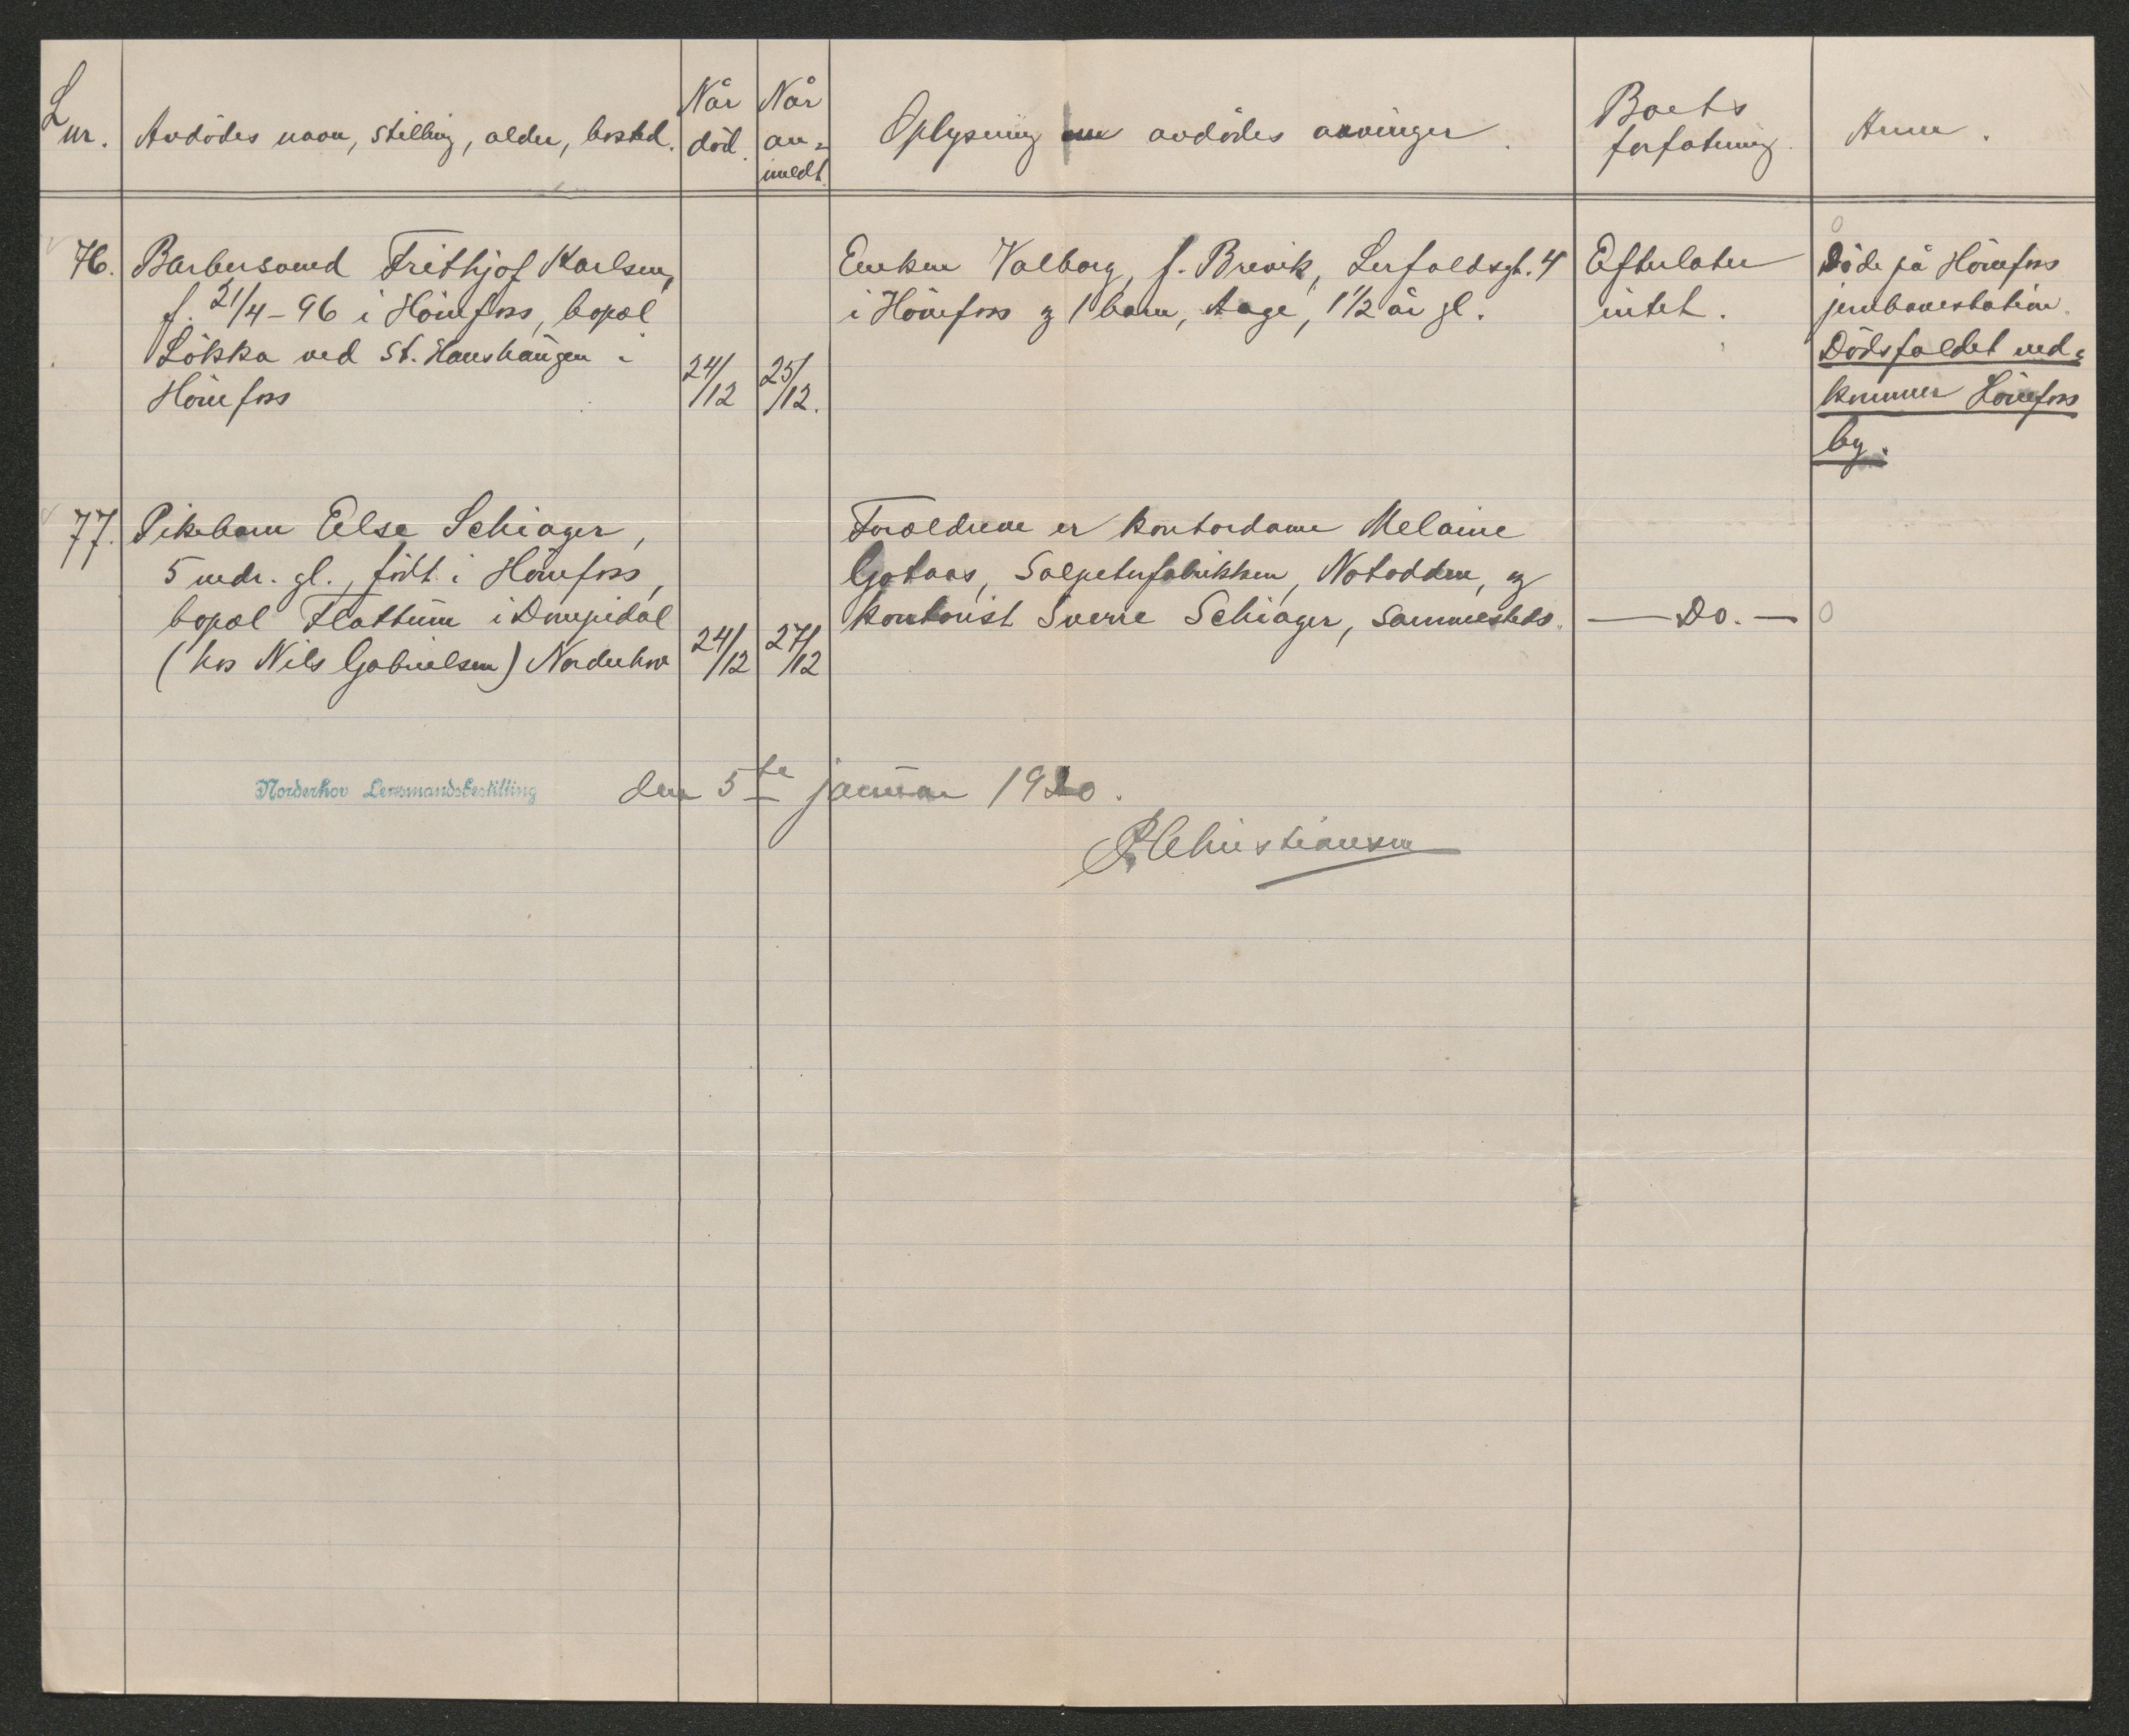 L nr.
Avdödes navn, stilling, alder, bosted.
Når död.
Når an=
meldt.
Oplysning om avdödes arvinger.
Boets
forfatning.
Anm.
76.
Barbersvend Frithjof Karlsen,
f. 21/4-96 i Hönefoss, bopæl
Lökka ved St. Hanshaugen i
Hönefoss
24/12
25/12.
Enken Valborg, f. Brevik, Lerfaldsgt. 4
i Hönefoss og 1 barn, Aage, 1 1/2 år gl.
Efterlater
intet.
Döde på Hönefoss
jernbanestation.
Dödsfaldet ved=
kommer Hönefoss
by.
77.
Pikebarn Else Schiager,
5 mdr. gl., födt i Hönefoss,
bopæl Flattum i
(hos Nils Gabrielsen) Norderhov
24/12
27/12
Forældrene er kontordame Melaine
Gotaas, Salpeterfabrikken, Notodden, og
kontorist Sverre Schiager, sammesteds.
— Do. —
0
Norderhov Lensmandsbestilling
den 5te januar 1920.
Christiansen